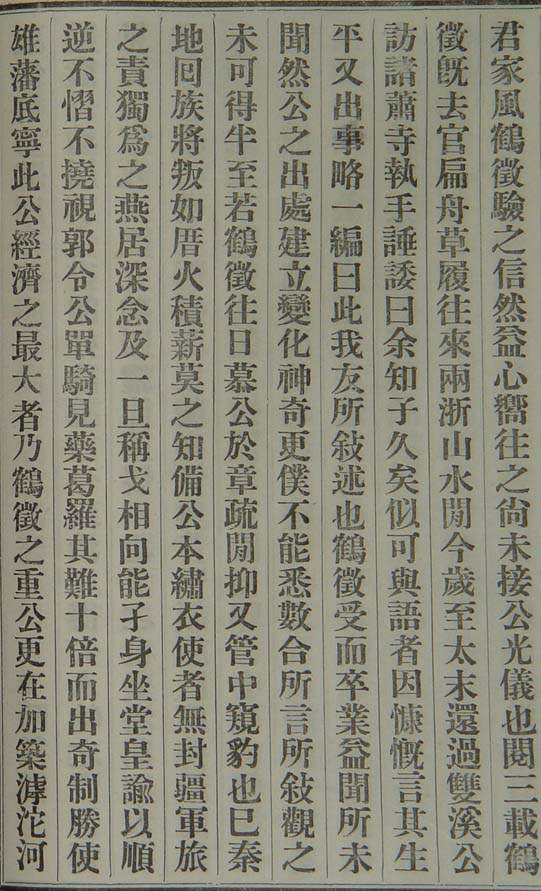 君家風鶴徵驗之信然益心嚮往之尙未接公光儀也閱三載鶴
徵旣去官扁舟草履往來兩浙山水閒今歲至太末還過雙溪公
訪諸蕭寺執手諈諉曰余知子久矣似可與語者因慷慨言其生
平又出事略一編曰此我友所敍述也鶴徵受而卒業益聞所未
聞然公之出處建立變化神奇更僕不能悉數合所言所敍觀之
未可得半至若鶴徵往日慕公於章疏閒抑又管中窺豹也已秦
地囘族將叛如厝火積薪莫之知備公本繡衣使者無封疆軍旅
之責獨爲之燕居深念及一旦稱戈相向能孑身坐堂皇諭以順
逆不慴不撓視郭令公單騎見藥葛羅其難十倍而出奇制勝使
雄藩底寧此公經濟之最大者乃鶴徵之重公更在加築滹沱河